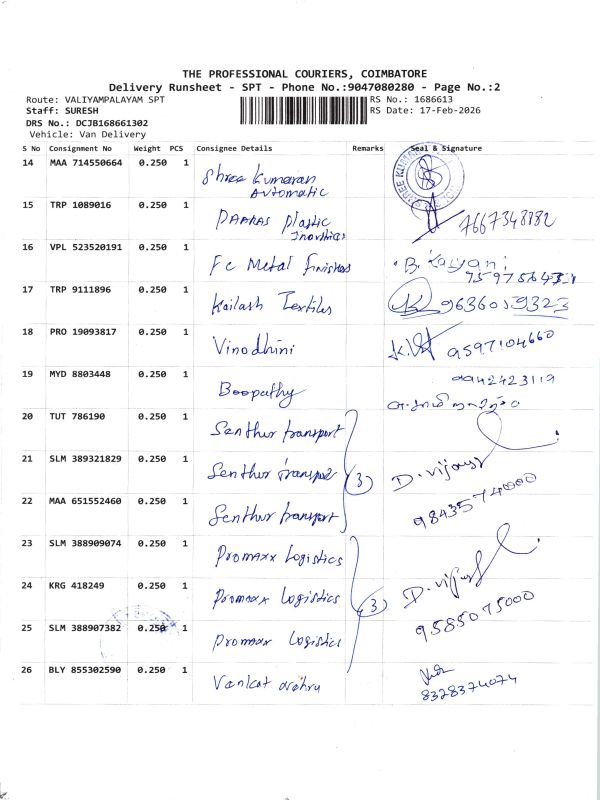 THE PROFESSIONAL COURIERS, COIMBATORE
Delivery Runsheet - SPT - Phone No.:9047080280 - Page No.:2
Route: VALIYAMPALAYAM SPT RS No.: 1686613
Staff: SURESH RS Date: 17-Feb-2026
DRS No.: DCJB168661302
Vehicle: Van Delivery
S No Consignment No Weight PCS Consignee Details Remarks Seal & Signature
14 MAA 714550664 0.250 1 Shree Kumaran
Automatic
15 TRP 1089016 0.250 1 Plastic
16 VPL 523520191 0.250 1 Fc Metal finishers B. Kalyani
17 TRP 9111896 0.250 1 Kailash Textiles 9636059323
18 PRO 19093817 0.250 1 Vinodhini 9597104660
19 MYD 8803448 0.250 1 Boopathy 9942423119
20 TUT 786190 0.250 1 Senthur transport
21 SLM 389321829 0.250 1 Senthur transport (3) D. Vijay
22 MAA 651552460 0.250 1 Senthur transport 9843574000
23 SLM 388909074 0.250 1 Promaxx Logistics
24 KRG 418249 0.250 1 Promaxx Logistics (3) D. Vijay
25 SLM 388907382 0.250 1 Promaxx Logistics 9585075000
26 BLY 855302590 0.250 1 Venkat 8328374074